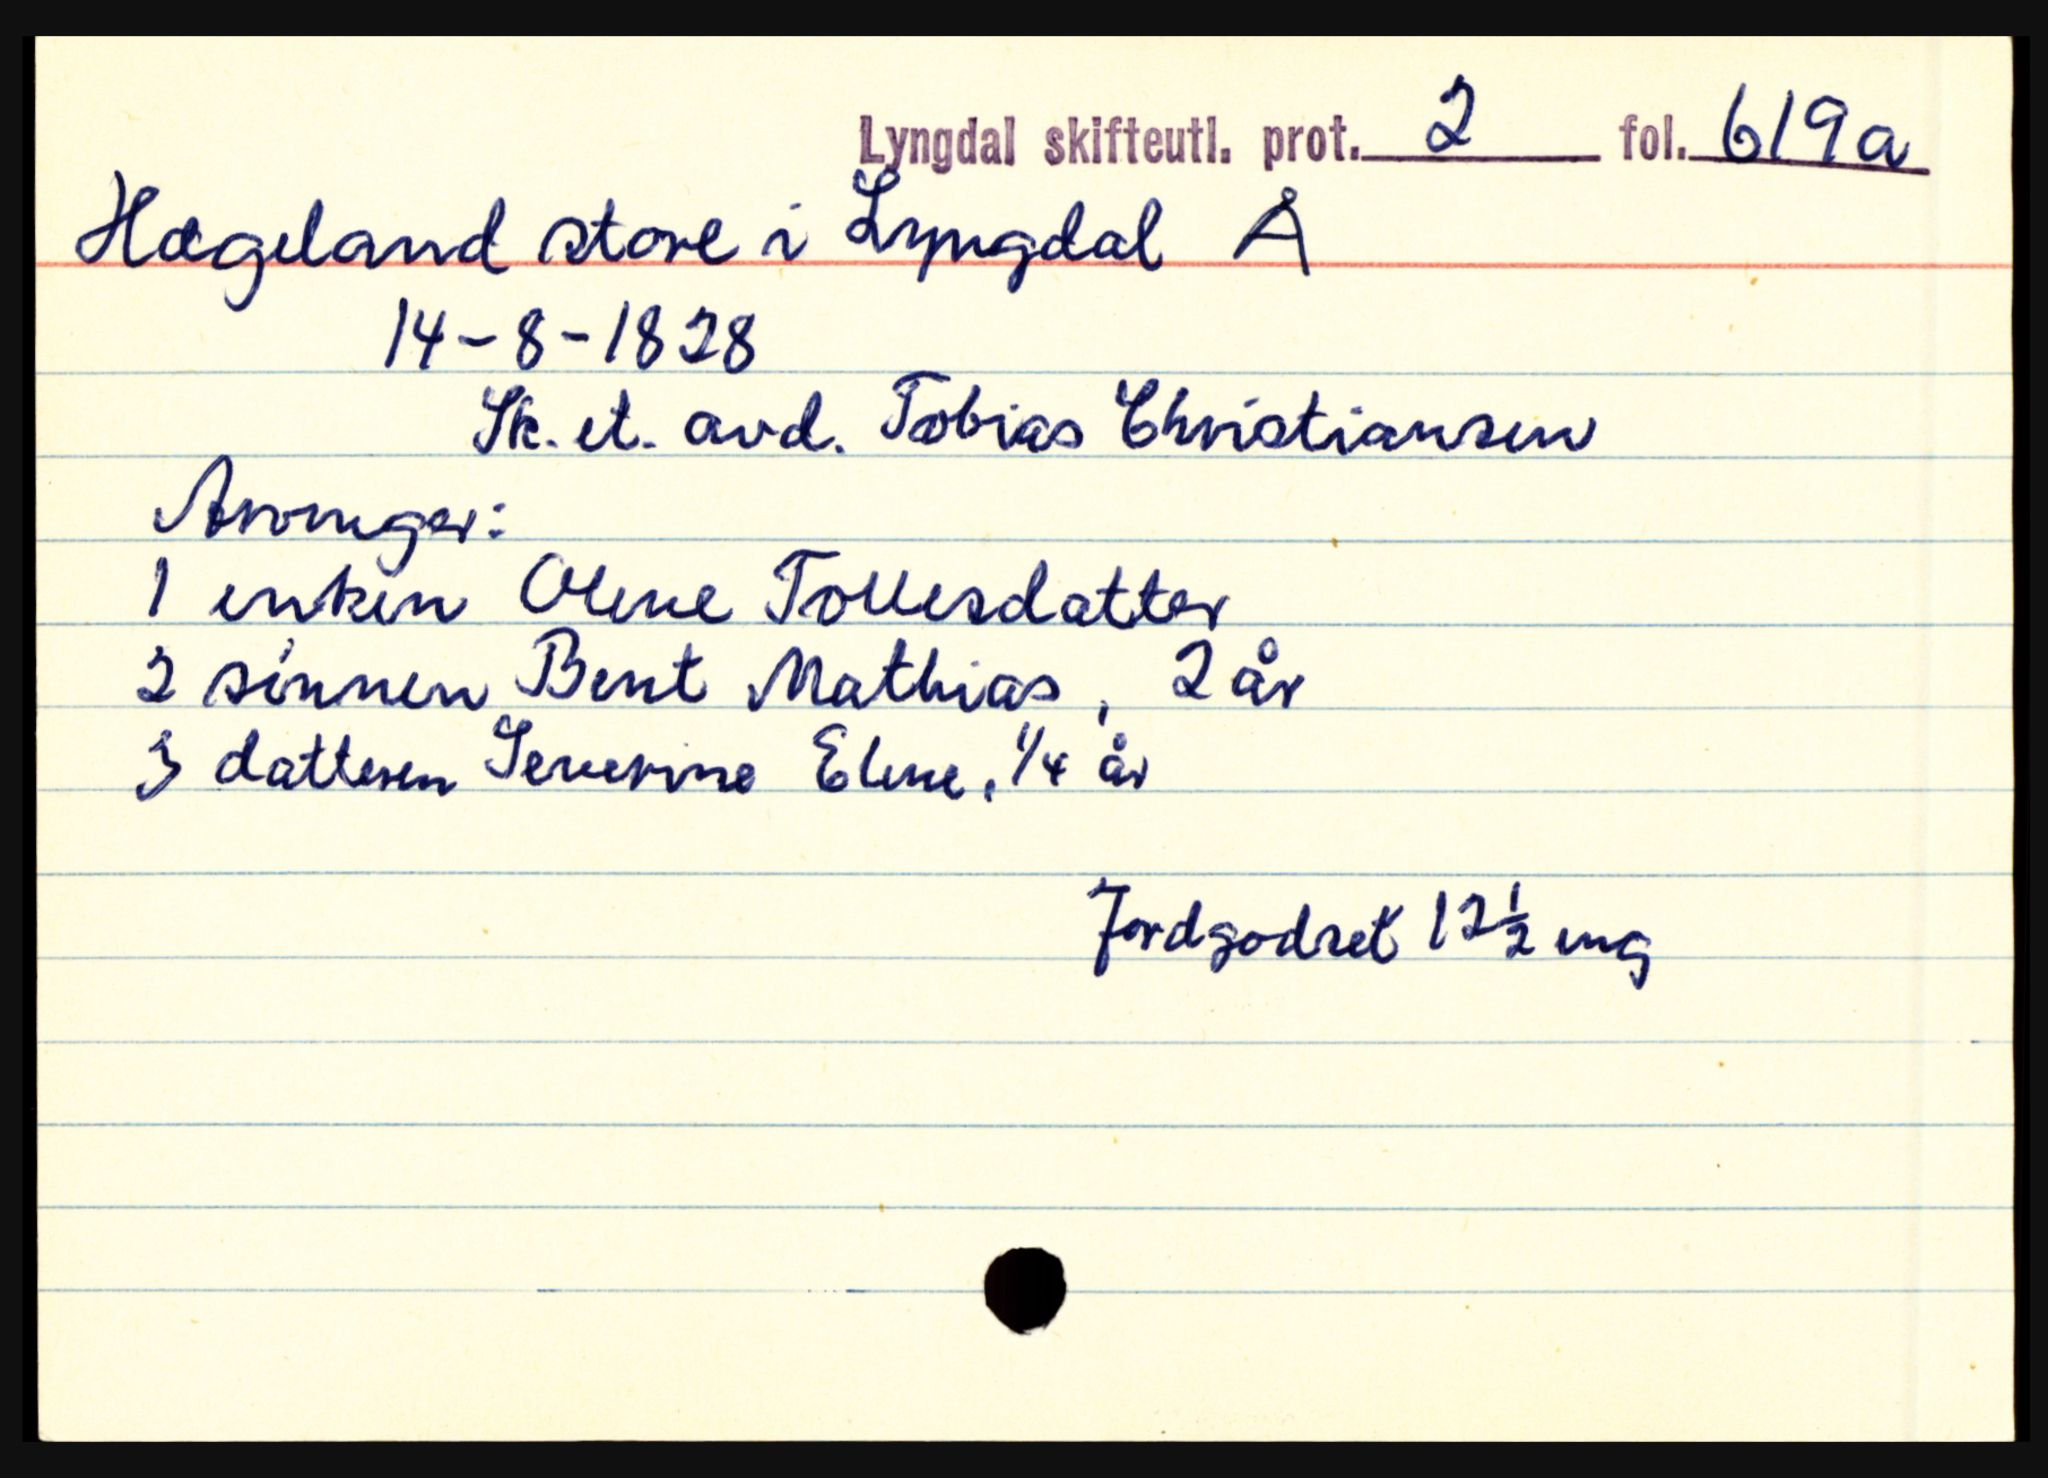 Lyngdal skifteutl. prot. 2 fol. 619a
Hægeland store i Lyngdal Å
14-8-1828
Sk. et. avd. Tobias Christiansen
Arvinger:
1 enken Olene Tollesdatter
2 sønnen Bent Mathias, 2 år
3 datteren Severine Elene, 1/4 år
Jordgodset 12 1/2 mg